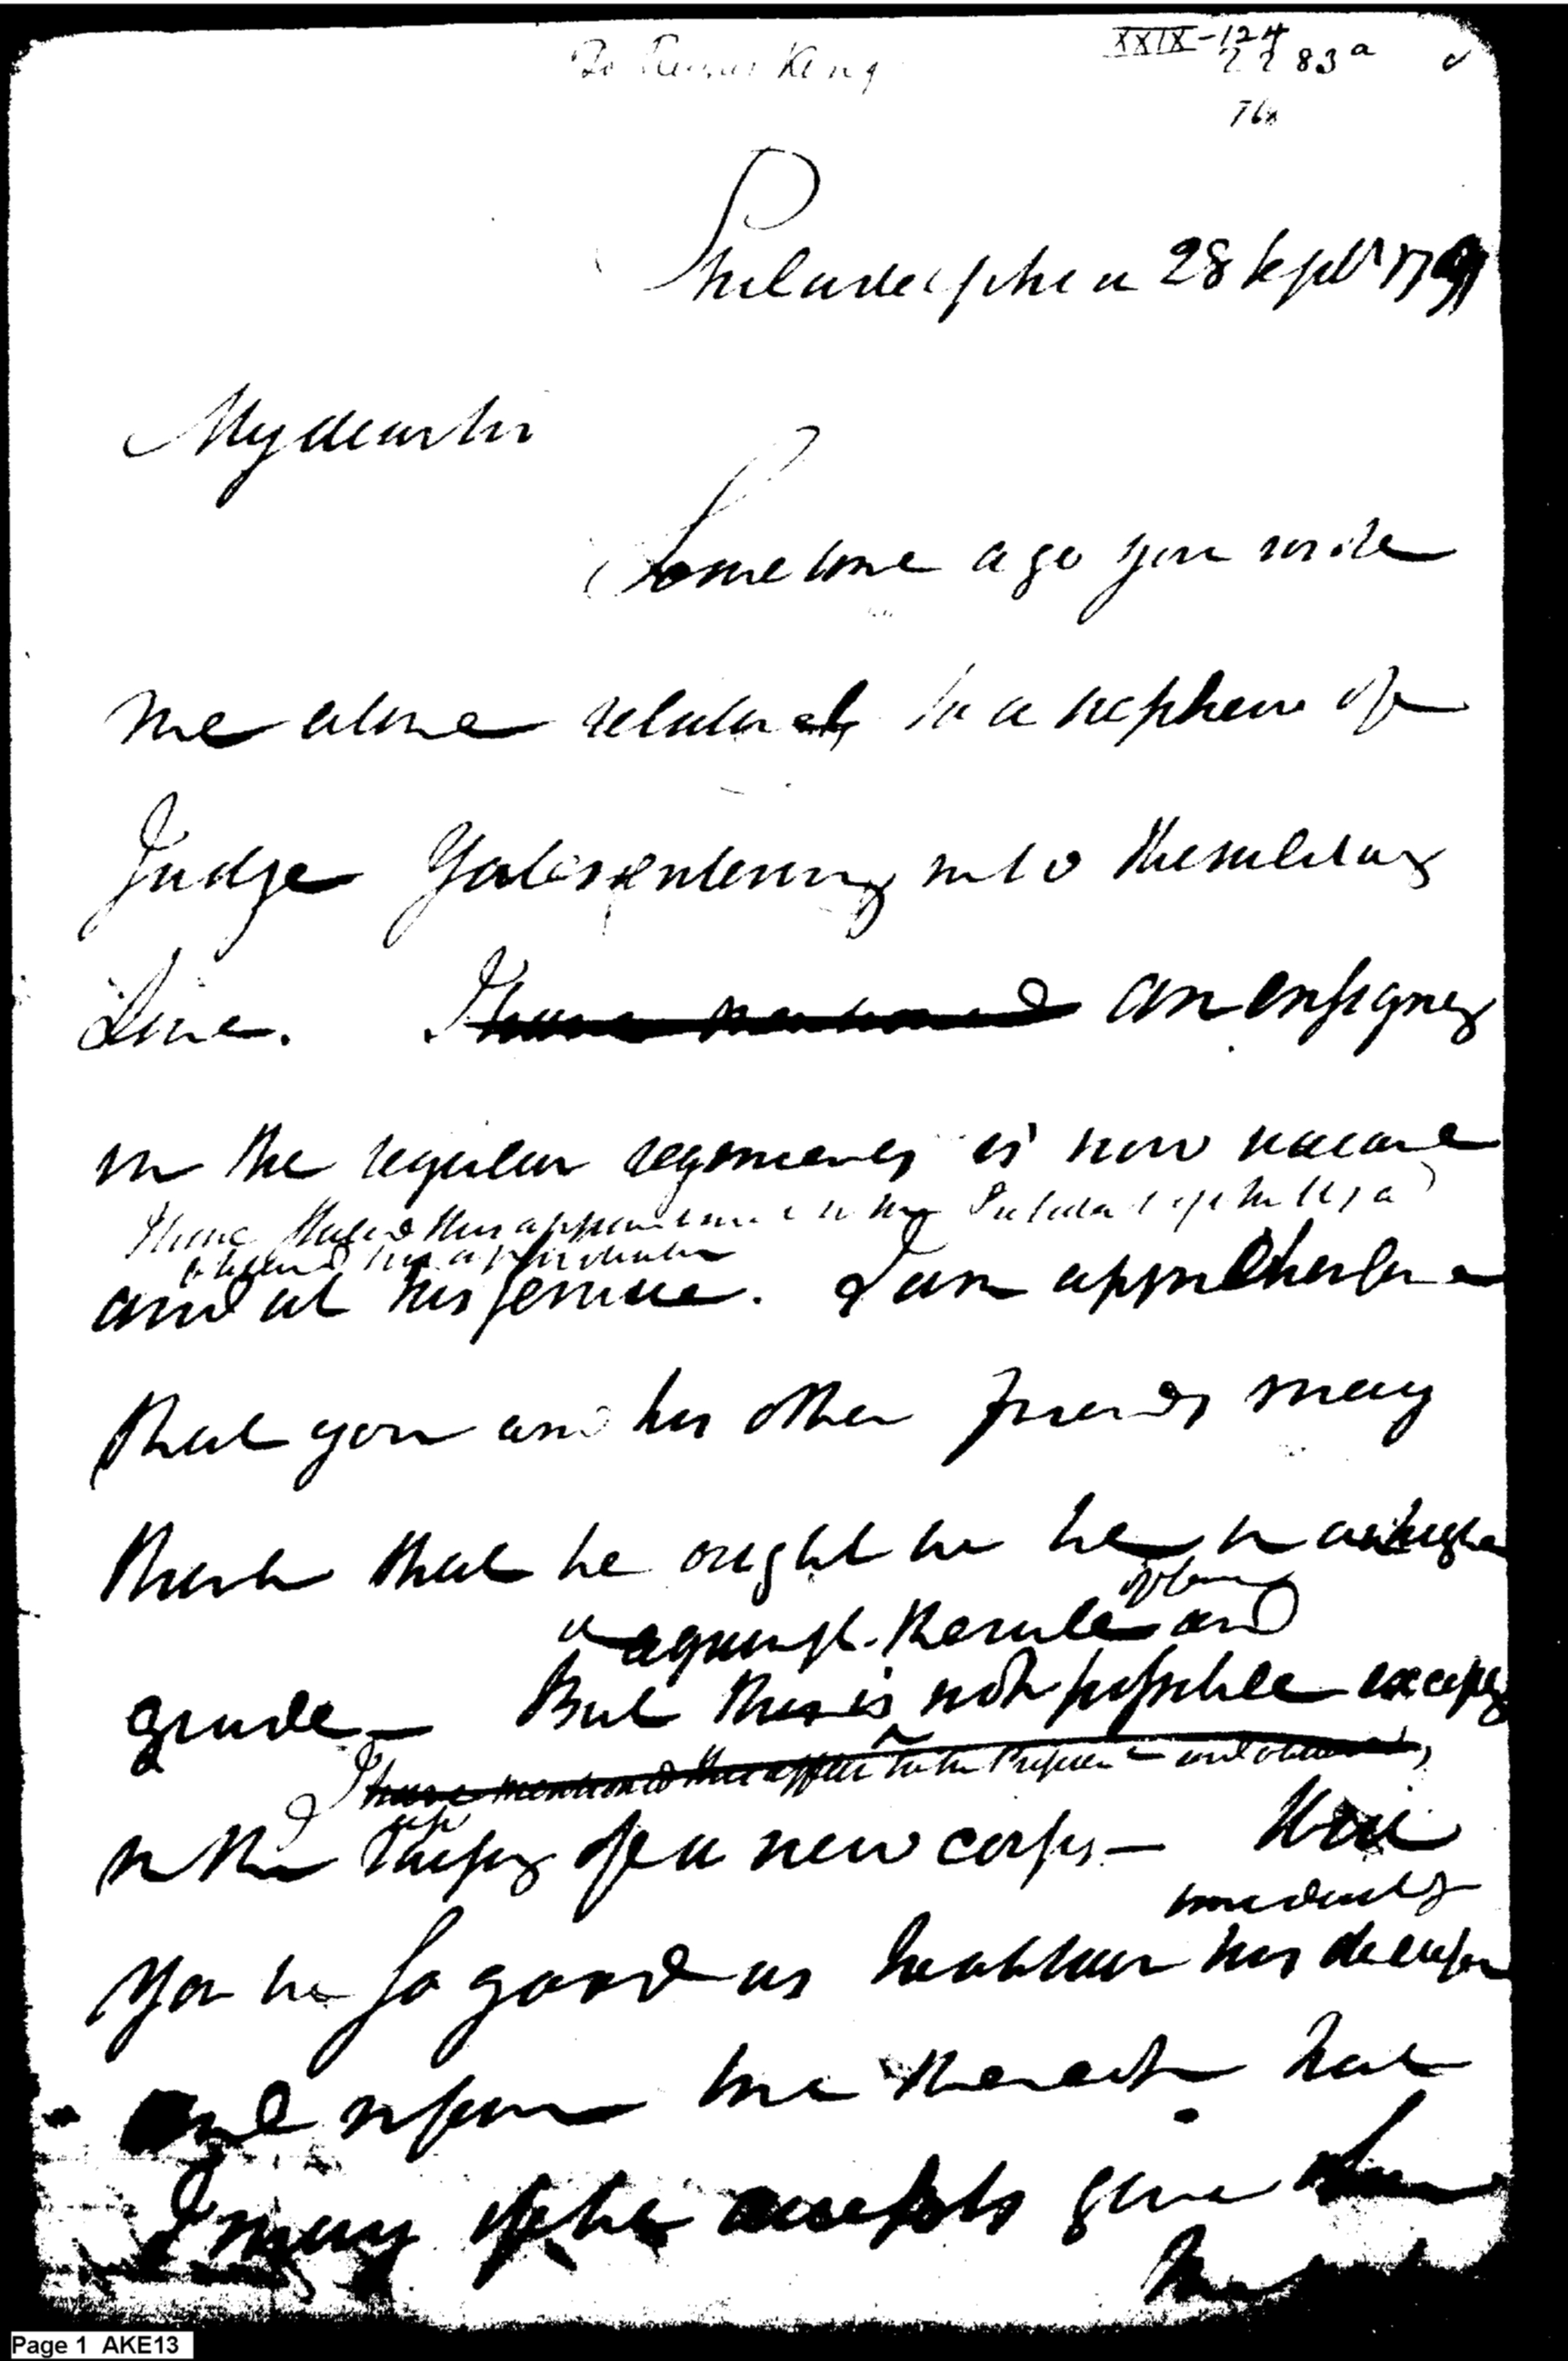 To Rufus King
XXIX-124
2283a
76
Philadelphia 28 Septr 1791
My dear Sir
Some time ago you wrote
me a line relatively to a nephew of
Judge Yates entering into the military
Line. I have mentioned an ensigncy
in the regular regiments is now vacant
I have stated this appointment to the
obtained his approbation
and at his service. I am apprehensive
that you and his other friends may
think that he ought to be in a higher
of promotion
against the rule and
grade – But this is not possible except
I have mentioned this affair to the President and obtained
in the case of a new corps – Will
immediately
you be so good as to obtain his decision
and inform me thereof that
I may if he accepts give him
Page 1 AKE13